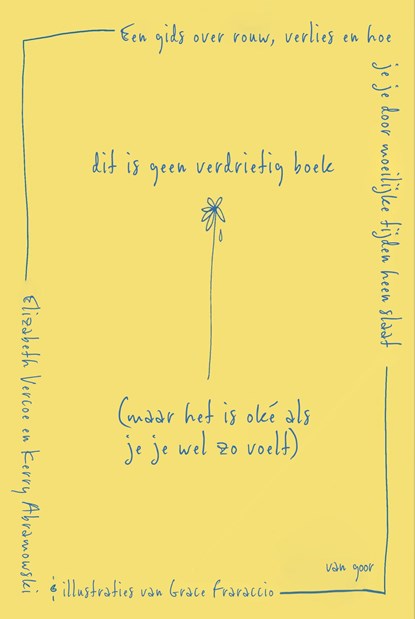 Een gids over rouw, verlies en hoe
je je door moeilijke tijden heen slaat
dit is geen verdrietig boek
(maar het is oké als
je je wel zo voelt)
Elizabeth Vercoe en Kerry Abramowski
& illustraties van Grace Fraraccio
van goor